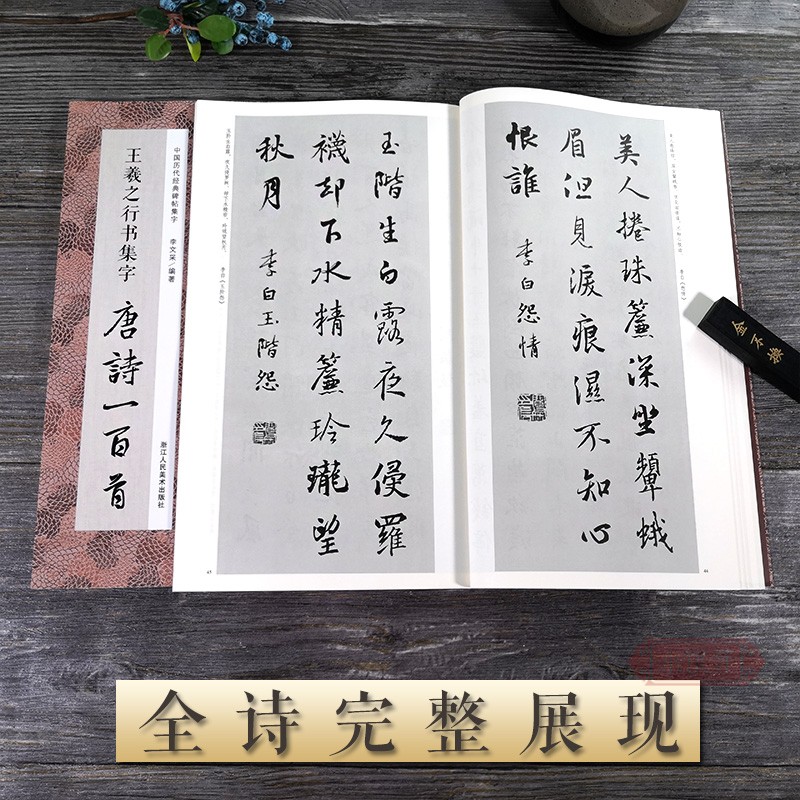 中国历代经典碑帖集字 李文采/编著
浙江人民美术出版社
王羲之行书集字
唐詩一百首
美人捲珠簾深坐顰蛾
眉但見淚痕濕不知心
恨誰
李白怨情
44
玉階生白露夜久侵羅
襪却下水精簾玲瓏望
秋月
李白玉階怨
45
金不換
全诗完整展现